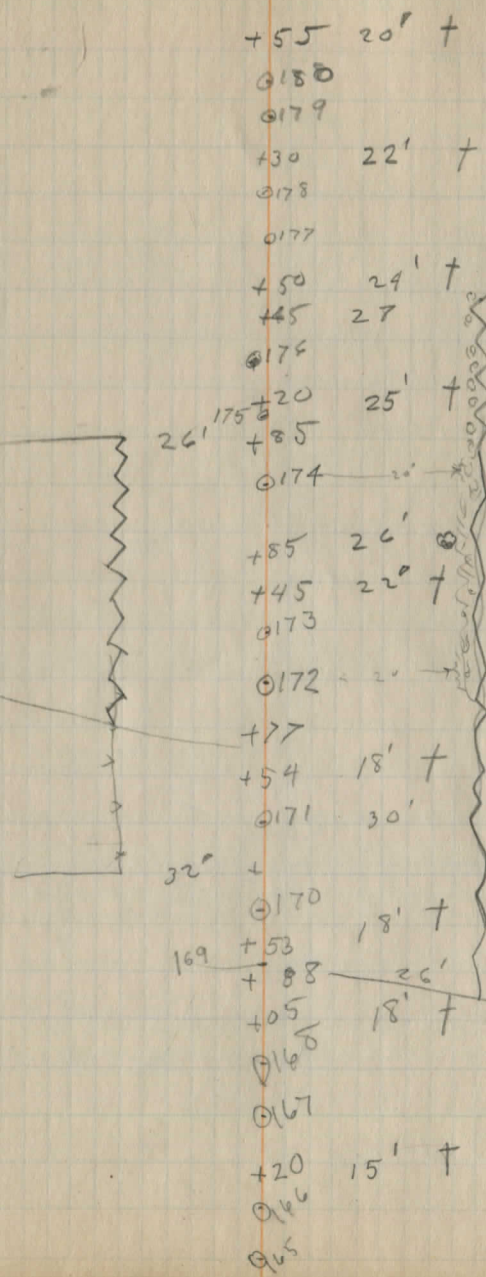 +55 20' †
⊙180
⊙179
+30 22' †
⊙178
⊙177
+50 24' †
+45 27
⊙176
+20 25' †
175
26' +85
⊙174 20'
+85 26'
+45 22' †
⊙173
⊙172 20'
+77
+54 18' †
⊙171 30'
32' +
⊙170
18' †
+53
169
+88 26'
+05 18' †
⊙168
⊙167
+20 15' †
⊙166
⊙165